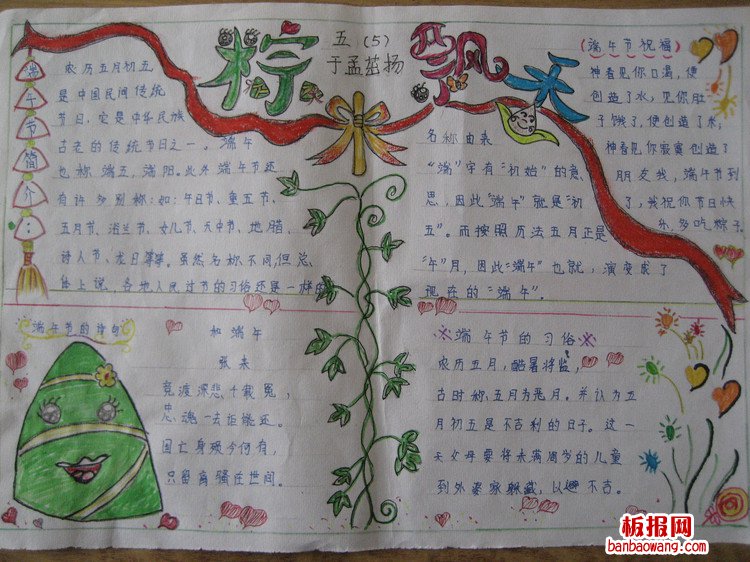 粽
飘
香
五(5)
于孟茹扬
端午节简介:
农历五月初五
是中国民间传统
节日,它是中华民族
古老的传统节日之一。端午
也称端五,端阳。此外端午节还
有许多别称:如:午日节、重五节、
五月节、浴兰节、女儿节、天中节、地腊、
诗人节、龙日等等。虽然名称不同,但总
体上说,各地人民过节的习俗还是一样的
名称由来
“端”字有“初始”的意
思,因此“端午”就是“初
五”。而按照历法五月正是
“午”月,因此“端午”也就,演变成了
现在的“端午”。
(端午节祝福)
神看见你口渴,便
创造了水;见你肚
子饿了,便创造了米;
神看见你寂寞创造了
朋友我,端午节到
了,我祝你节日快
乐,多吃粽子
端午节的诗句
和端午
张耒
竞渡深悲千载冤,
忠魂一去讵能还。
国亡身殒今何有,
只留离骚在世间。
端午节的习俗
农历五月,酷暑将临,
古时称五月为恶月。并认为五
月初五是不吉利的日子。这一
天父母要将未满周岁的儿童
到外婆家躲藏,以避不吉。
板报网
banbaowang.com